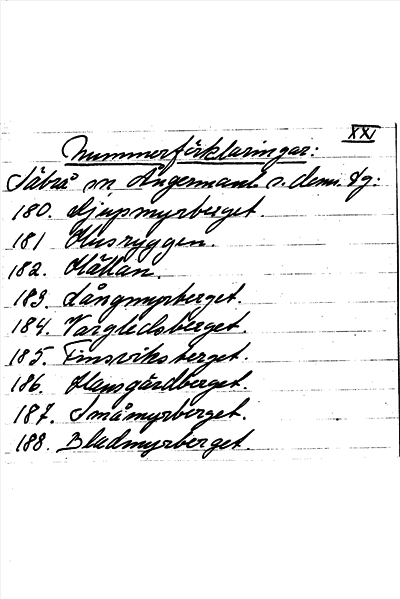 XXI
Nummerförklaringar:
Säbrå sn, Ångermanl. s. dom. sg.
180. Djupmyrberget
181 Husryggen.
182. Hällan.
183. Långmyrberget.
184. Vargledsberget.
185. Finsviksberget.
186. Hapsgårdberget.
187. Småmyrberget.
188. Bladmyrberget.